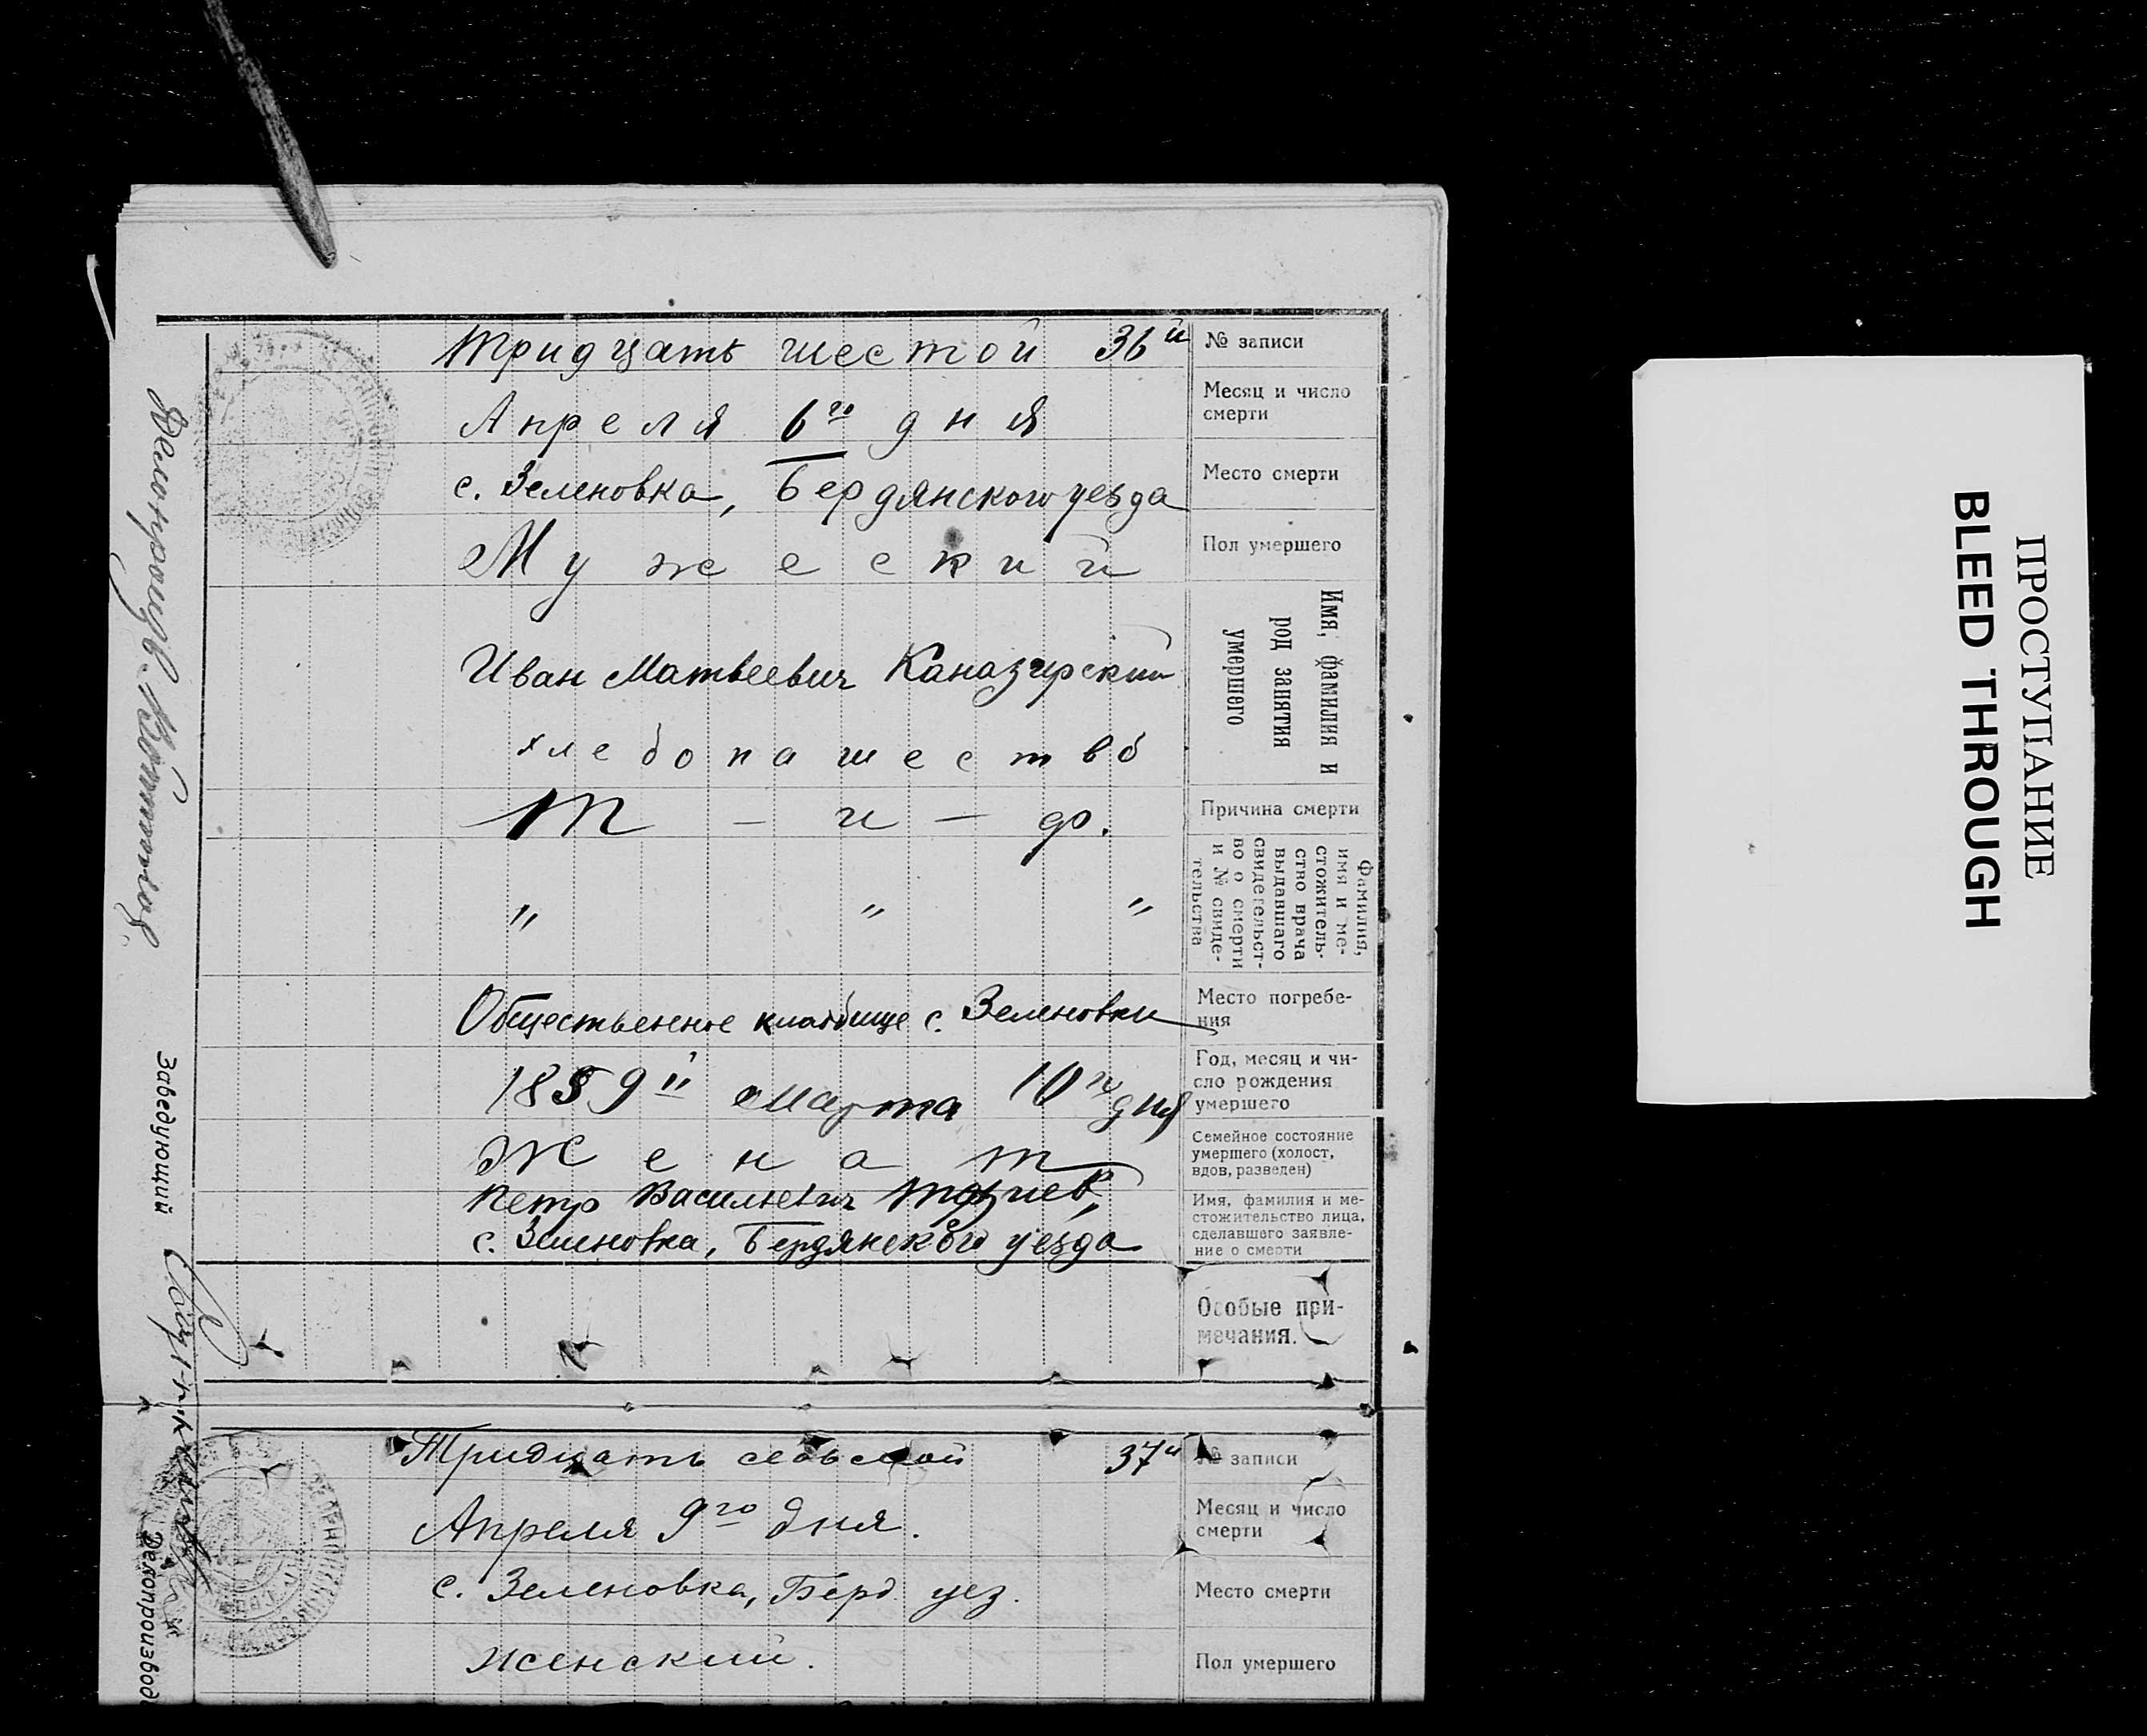 Тридцать шестой 36й
№ записи
Апреля 6го дня
Месяц и число
смерти
с. Зеленовка, Бердянского уезда
Место смерти
Мужеский
Пол умершего
Иван Матвеевич
хлебопашество
Имя, фамилия и
род занятия
умершего
Т - и - ф.
Причина смерти
" " "
Фамилия,
имя и ме-
стожитель-
ство врача
выдавшаго
свидетельст-
во о смерти
и № свиде-
тельства
Общественное кладбище с. Зеленовки
Место погребе-
ния
18 9й Марта 10го дня
Год, месяц и чи-
сло рождения
умершего
Женат
Семейное состояние
умершего (холост,
вдов, разведен)
Петр Васильевич
с. Зеленовка, Бердянского уезда
Имя, фамилия и ме-
стожительство лица,
сделавшего заявле-
ние о смерти
Особые при-
мечания.
Заведующий
Тридцать седьмой 37й
№ записи
Апреля 9го дня.
Месяц и число
смерти
с. Зеленовка, Берд. уез.
Место смерти
Женский.
Пол умершего
Делопроизвод
ПРОСТУПАНИЕ
BLEED THROUGH